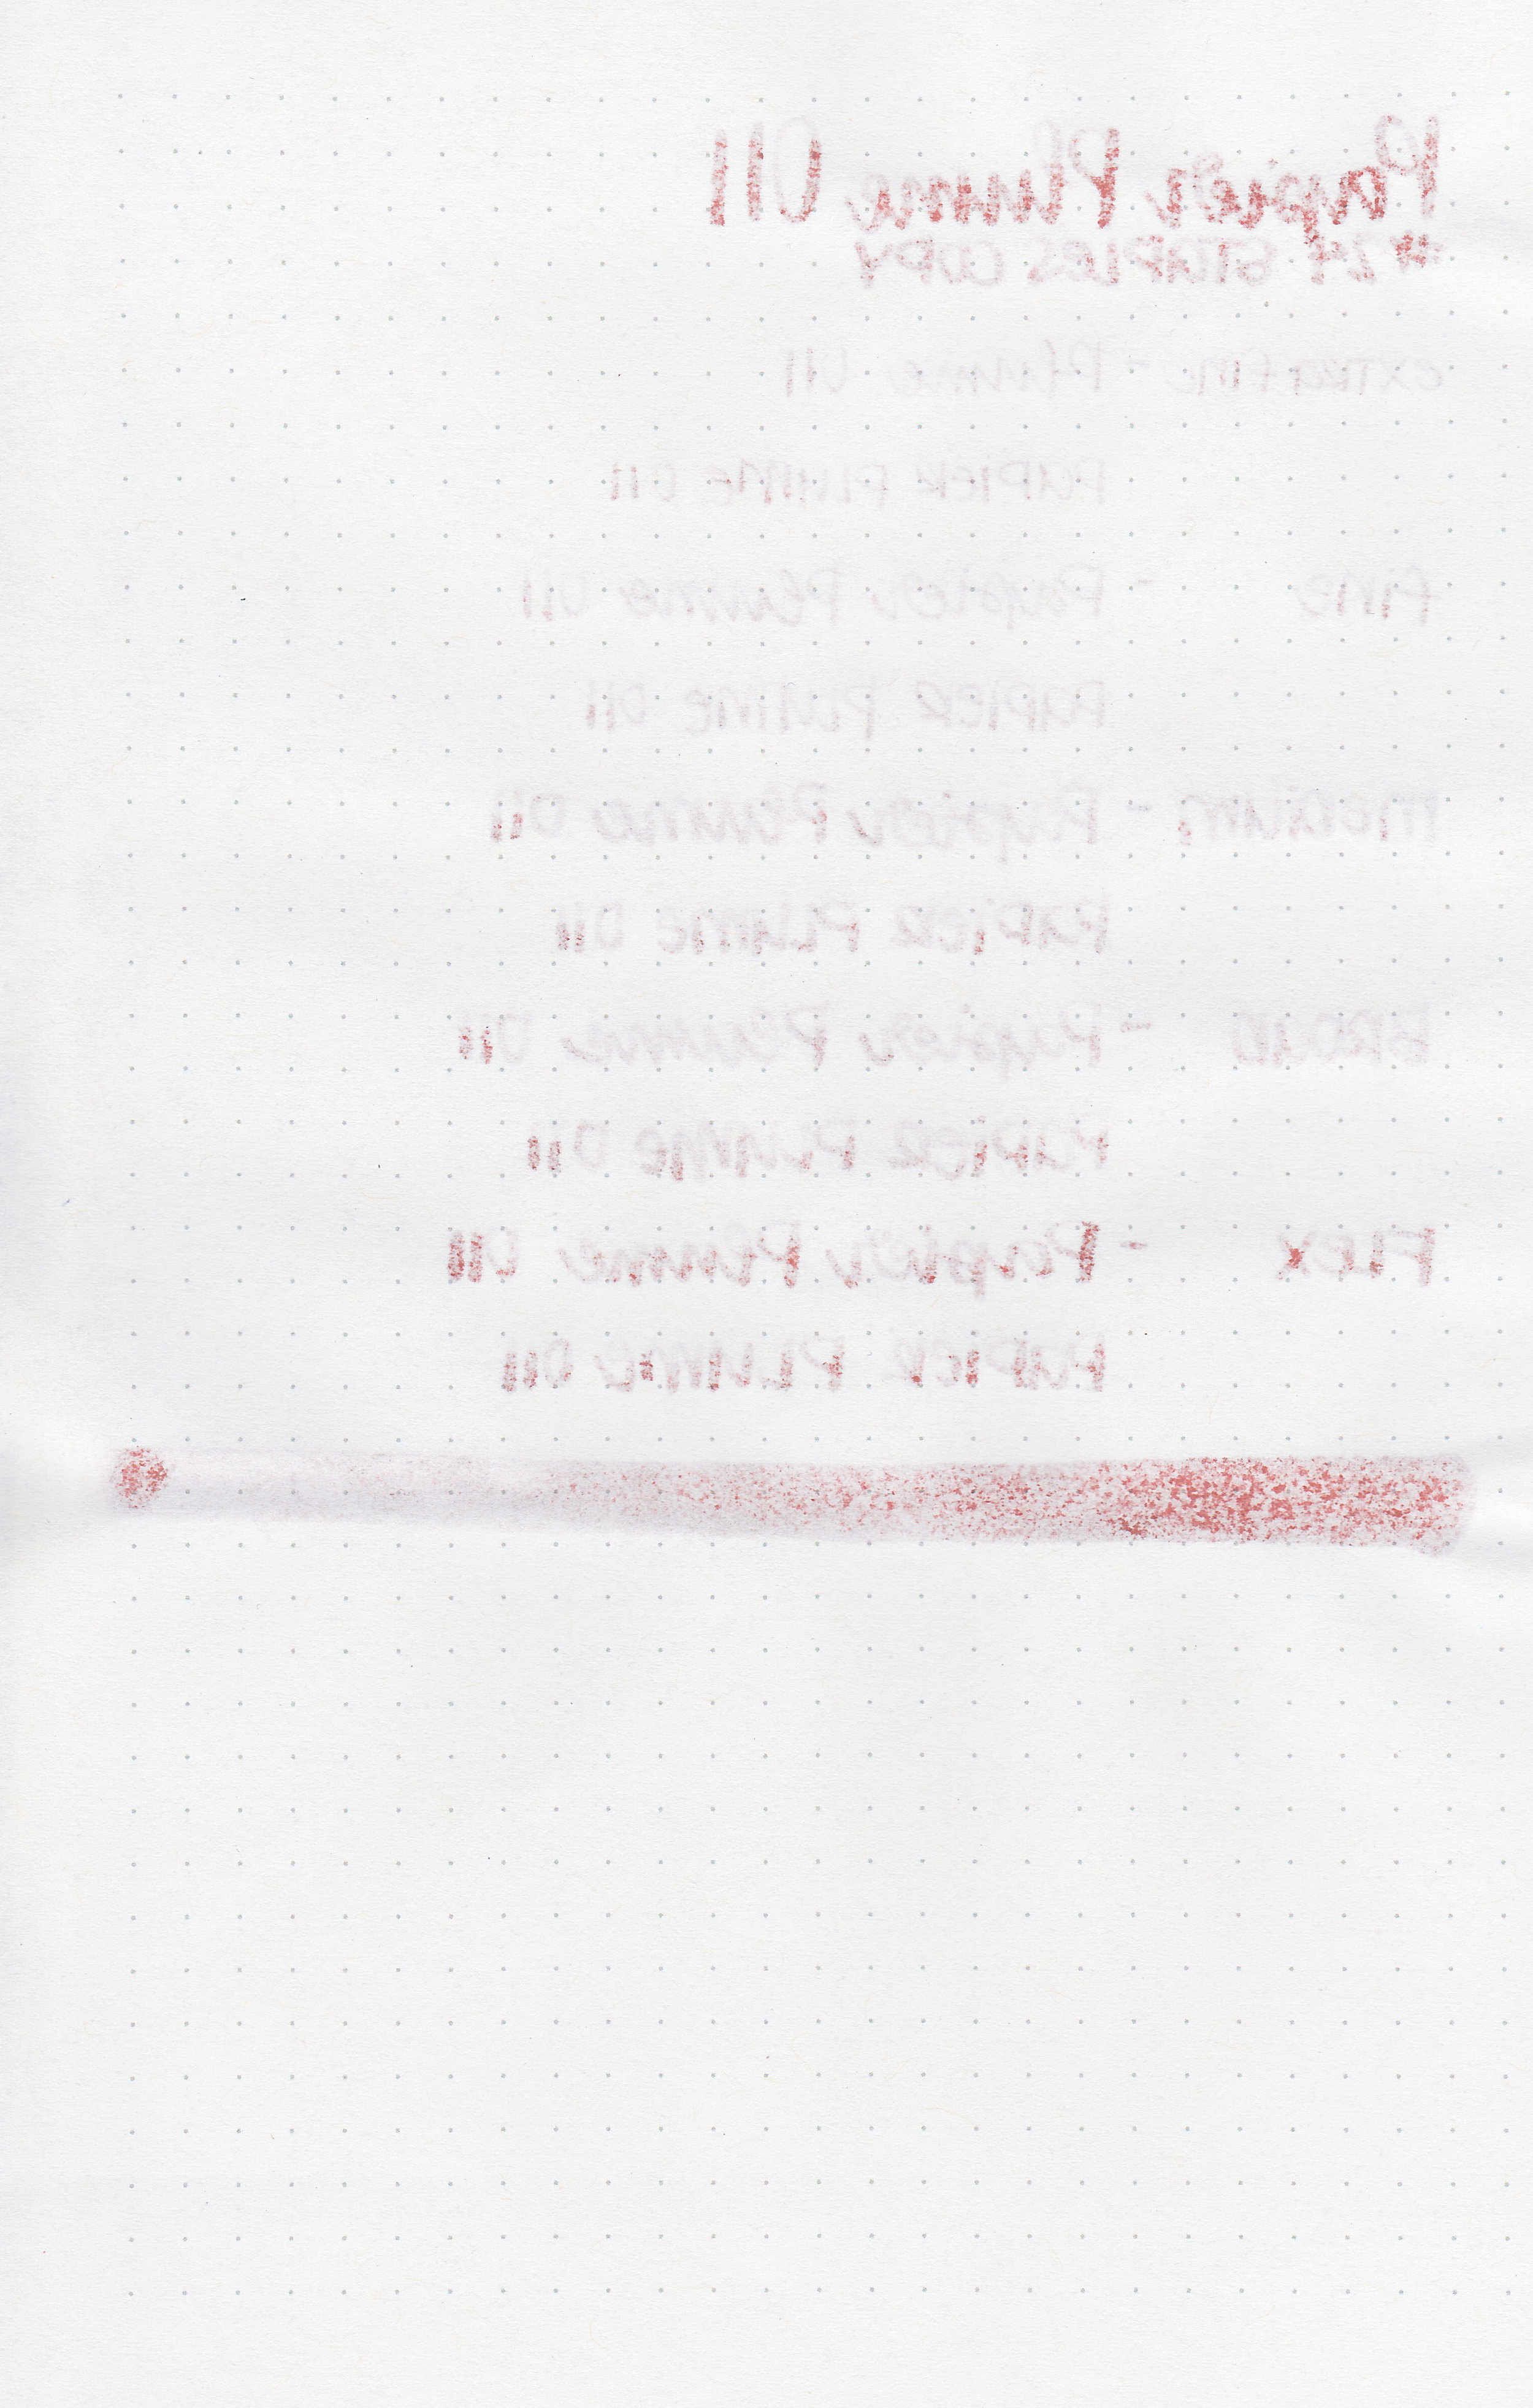 Papier Plume 011
#24 STAPLES COPY
EXTRA FINE - Plume 011
PAPIER PLUME 011
fine - Papier Plume 011
PAPIER PLUME 011
medium - Papier Plume 011
PAPIER PLUME 011
BROAD - Papier Plume 011
PAPIER PLUME 011
FLEX - Papier Plume 011
PAPIER PLUME 011